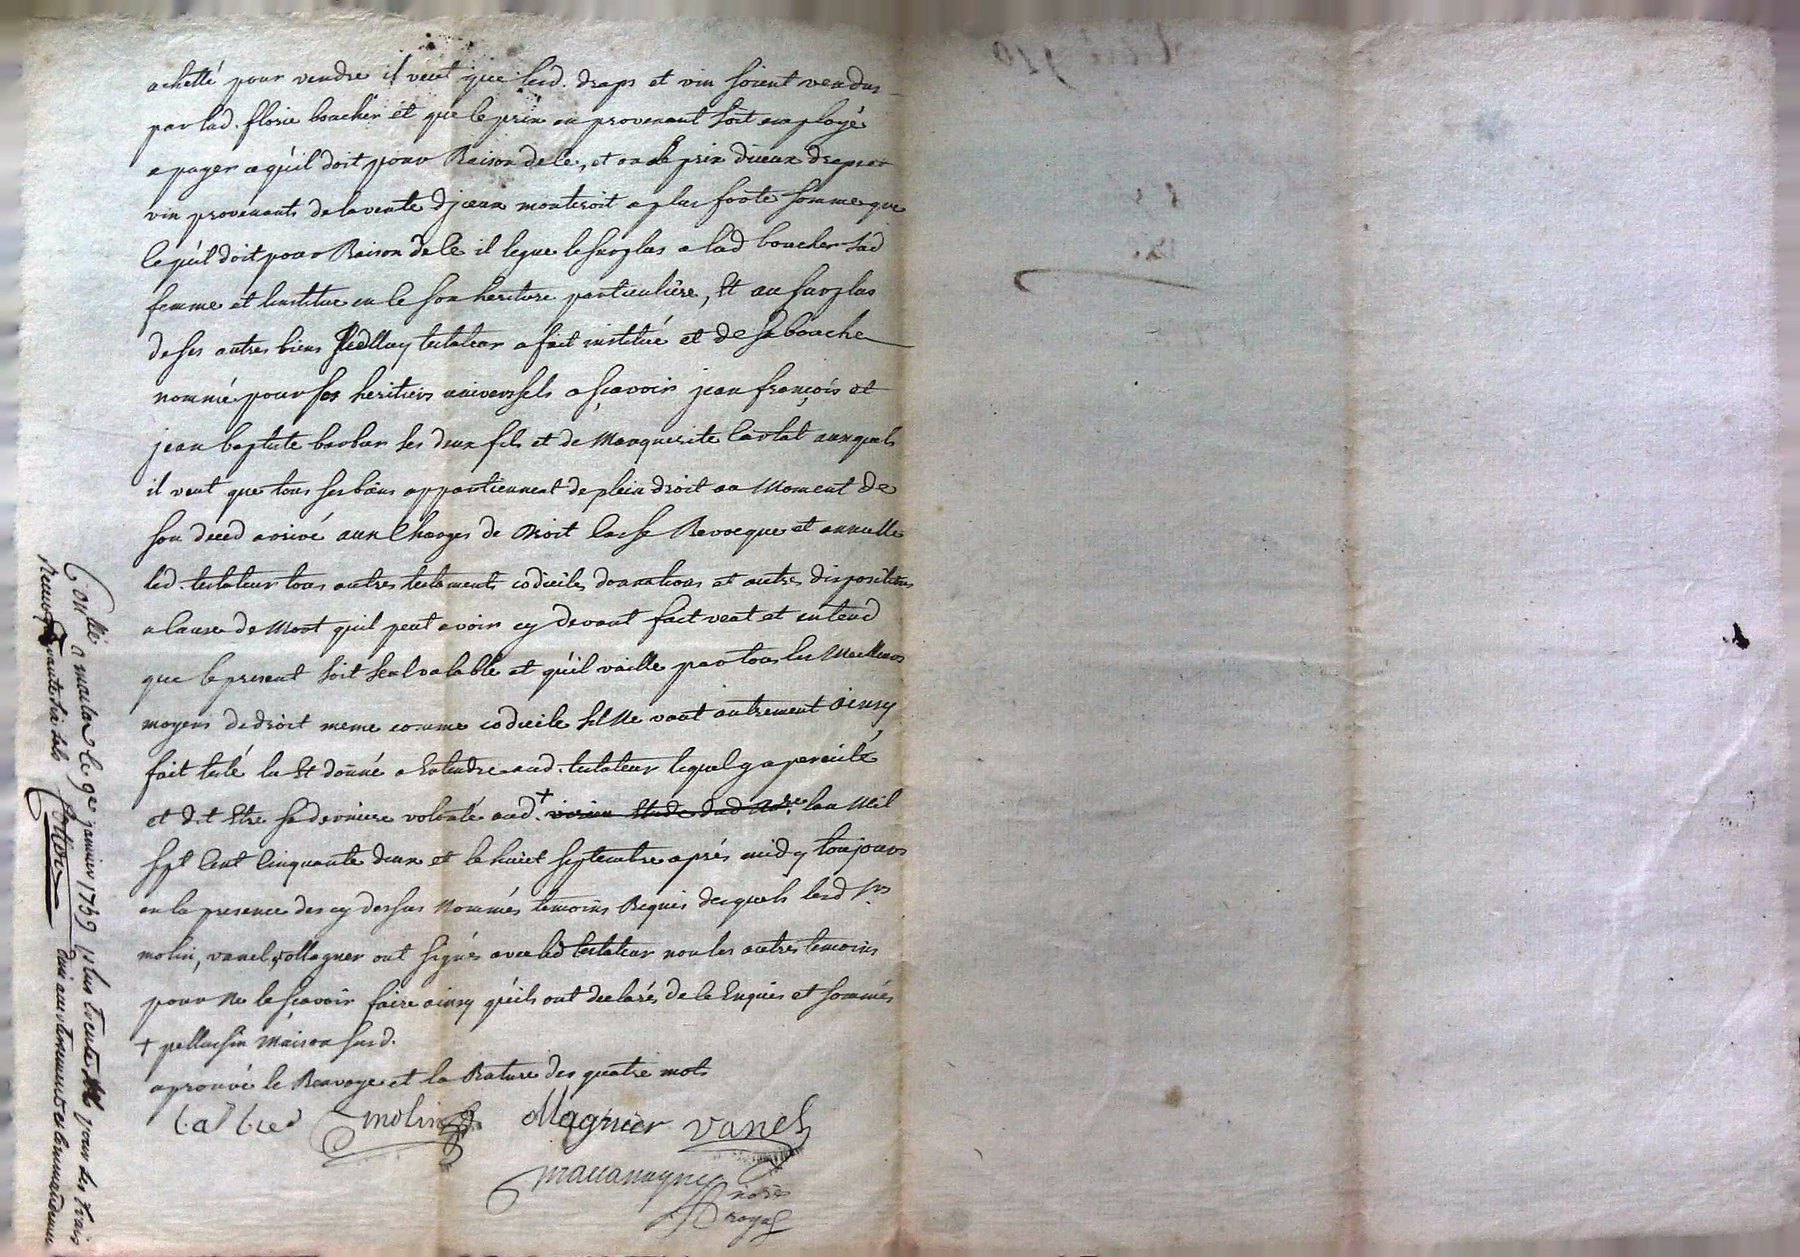 achetté pour vendre il veut que lesd. draps et vin soient vendus
par lad. florie boucher et que le prix en provenant soit employé
a payer ce qu'il doit pour Raison de ce, et ou le prix diceux draps et
vin provenants de la vente d'jceux monteroit a plus forte somme que
ce qu'il doit pour Raison de ce il legue le surplus a lad boucher sad
femme et linstitue en ce son heritiere particulière, Et au surplus
de ses autres biens led testateur a fait institué et de sa bouche
nommé pour ses heritiers universels a sçavoir jean françois et
jean baptiste barbar ses deux fils et de Marguerite auxquels
il veut que tous ses biens appartiennent de plein droit au Moment de
son deced arrivé aux Charges de Droit Casse Revocque et annulle
led. testateur tous autres testament codicile donnations et autres dispositions
a Cause de Mort quil peut avoir cy devant fait veut et entend
que le present soit seul valable et qu'il vaille par tous les Meilleurs
moyens de droit meme comme codicile sil Ne vaut autrement ainsy
fait recité lu Et donné a Entendre aud. testateur lequel y a perciste
et dit Etre sa derniere volonté aud. + lan Mil
sept Cent Cinquante deux et le huict septembre aprés midy toujours
en la presence des cy dessus Nommés temoins Requis desquels lesd Srs
molin, vanel, ollagner ont signés avec led testateur non les autres temoins
pour Ne le sçavoir faire ainsy qu'ils ont declarés de ce Enquis et sommés
+ pellissin maison susd.
aprouvé le Renvoye et la Rature des quatre mots
molin ollagnier vanel
nore
royal
Conllé a le 9e janvier 1759 trente pour les frais
Reçu